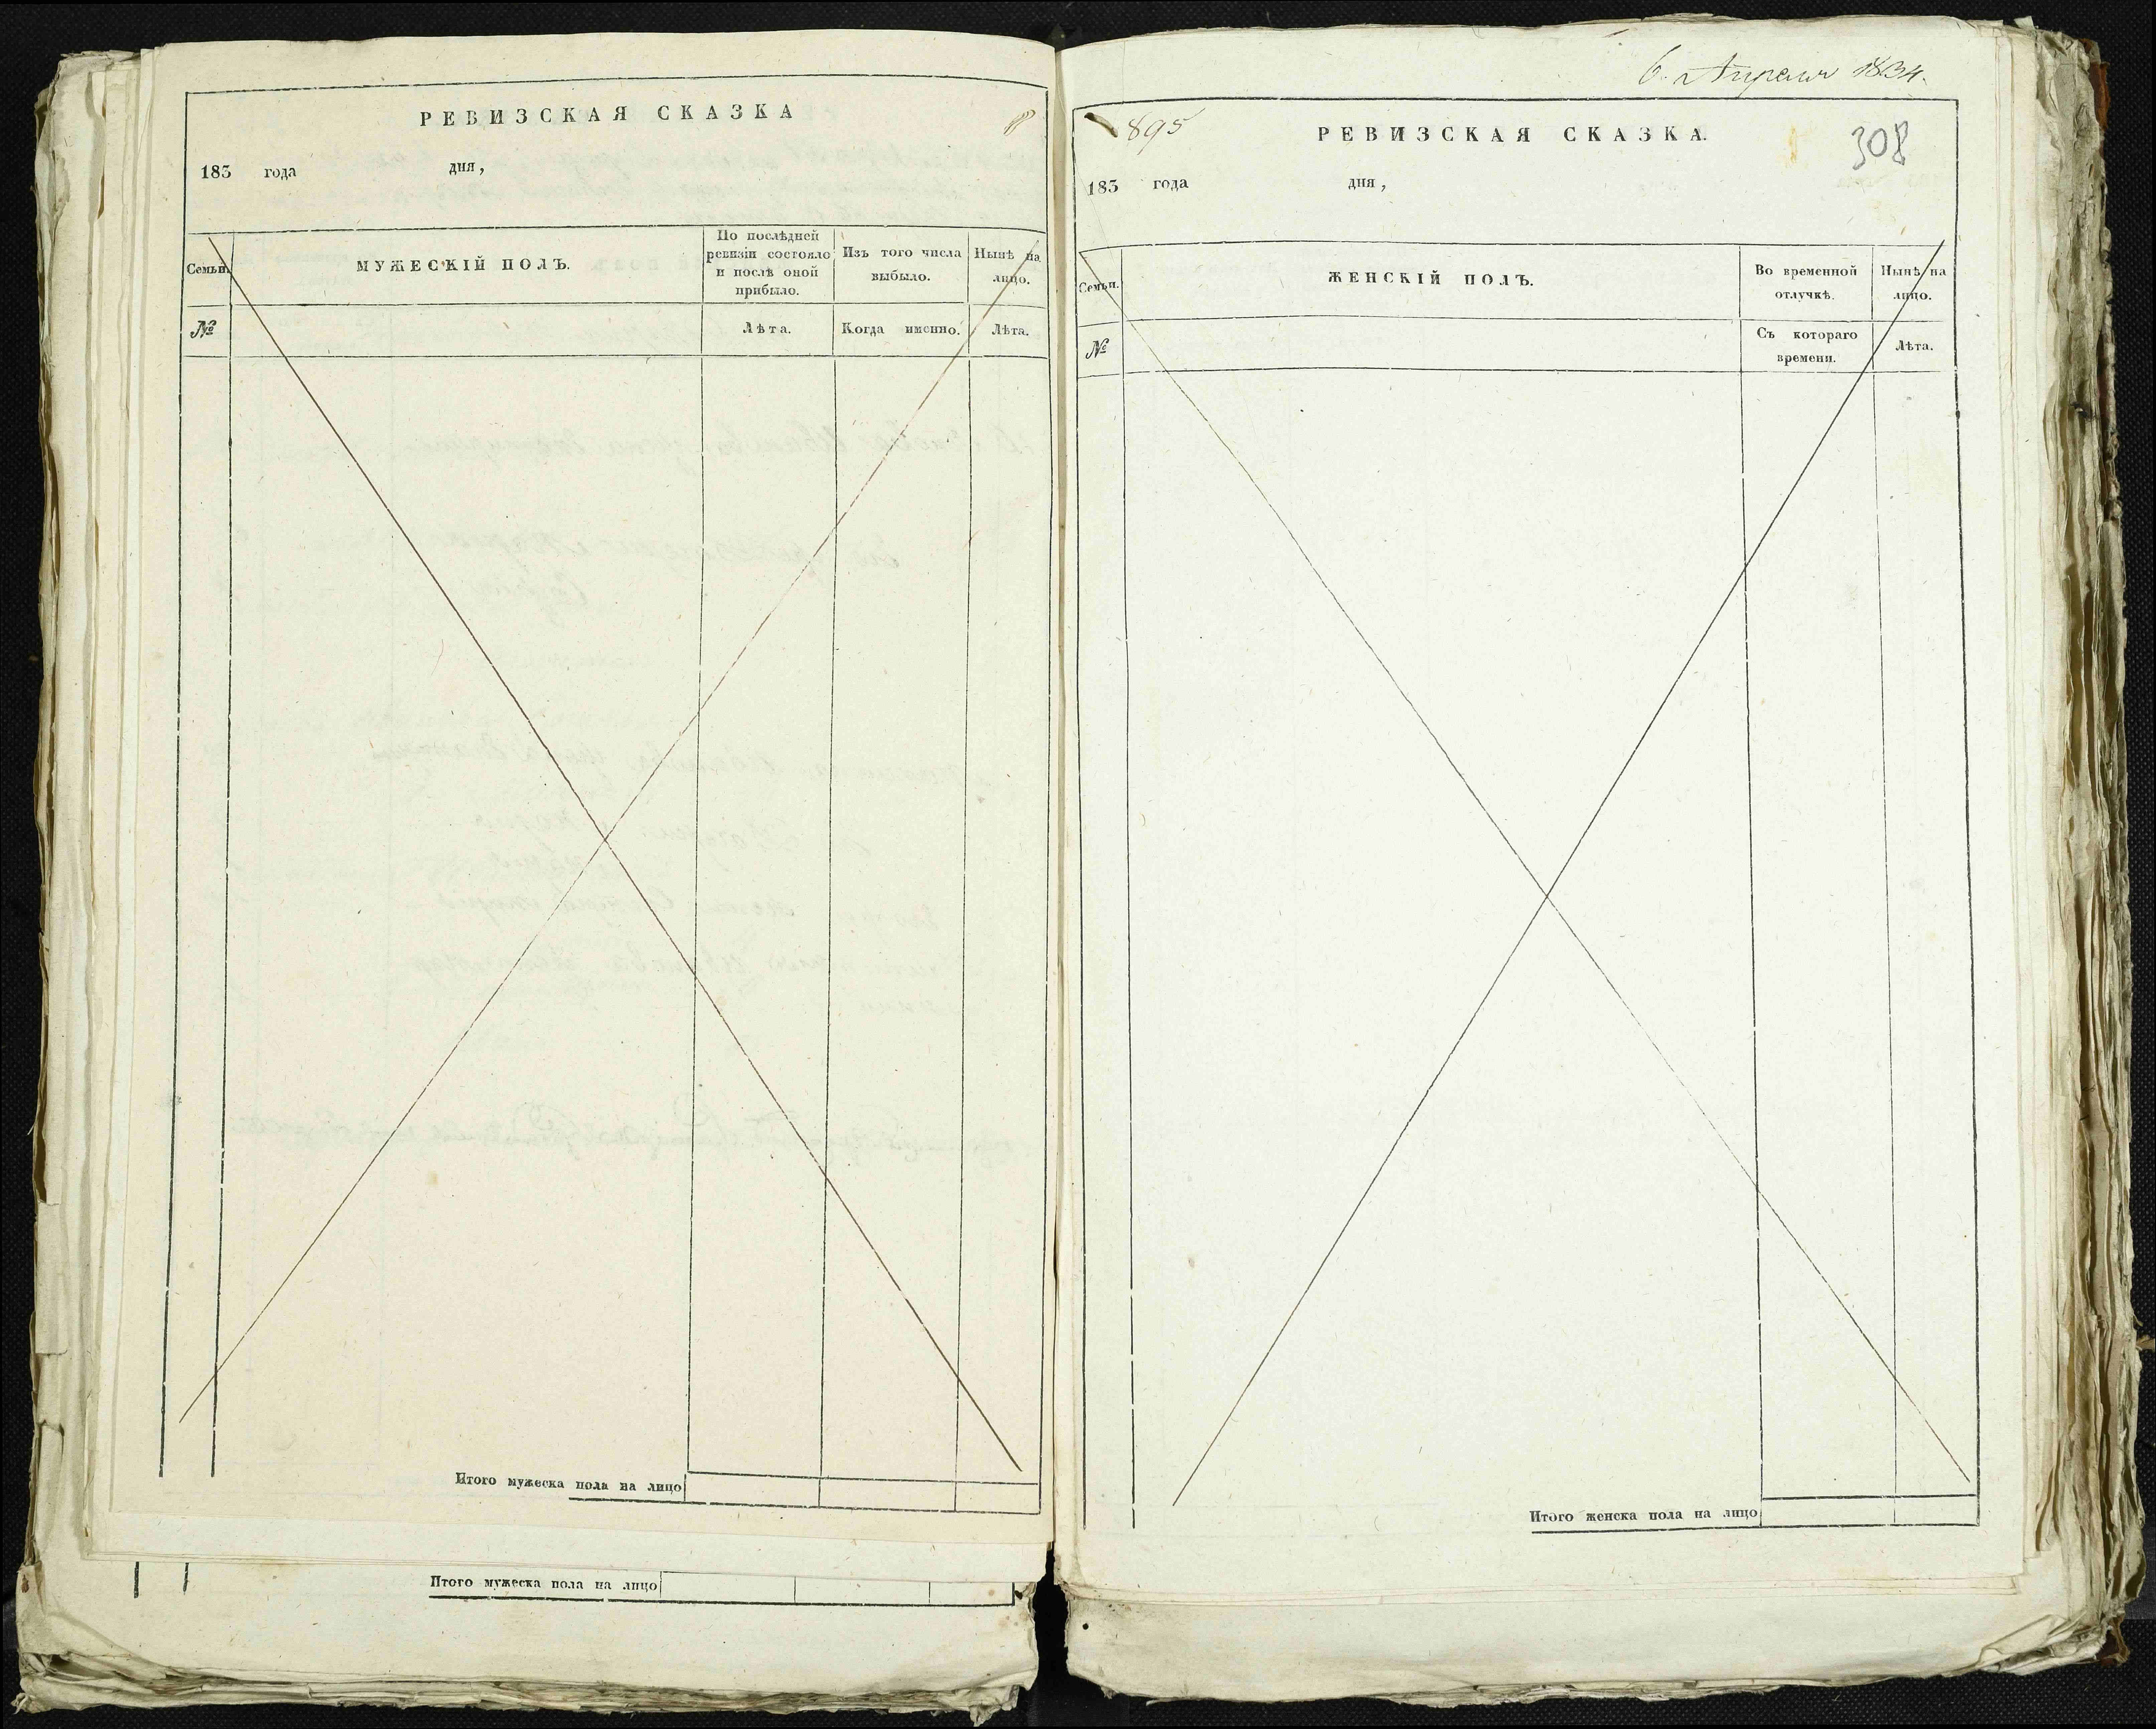 РЕВИЗСКАЯ СКАЗКА
183 года дня,
Семьи.
МУЖЕСКІЙ ПОЛЪ.
По послѣдней
ревизіи состояло
и послѣ оной
прибыло.
Изъ того числа
выбыло.
Нынѣ на
лицо.
№
Лѣта.
Когда именно.
Лѣта.
Итого мужеска пола на лицо
Итого мужеска пола на лицо
6. Апреля 1834.
895
РЕВИЗСКАЯ СКАЗКА.
308
183 года дня,
Семьи.
ЖЕНСКІЙ ПОЛЪ.
Во временной
отлучкѣ.
Нынѣ на
лицо.
№
Съ котораго
времени.
Лѣта.
Итого женска пола на лицо